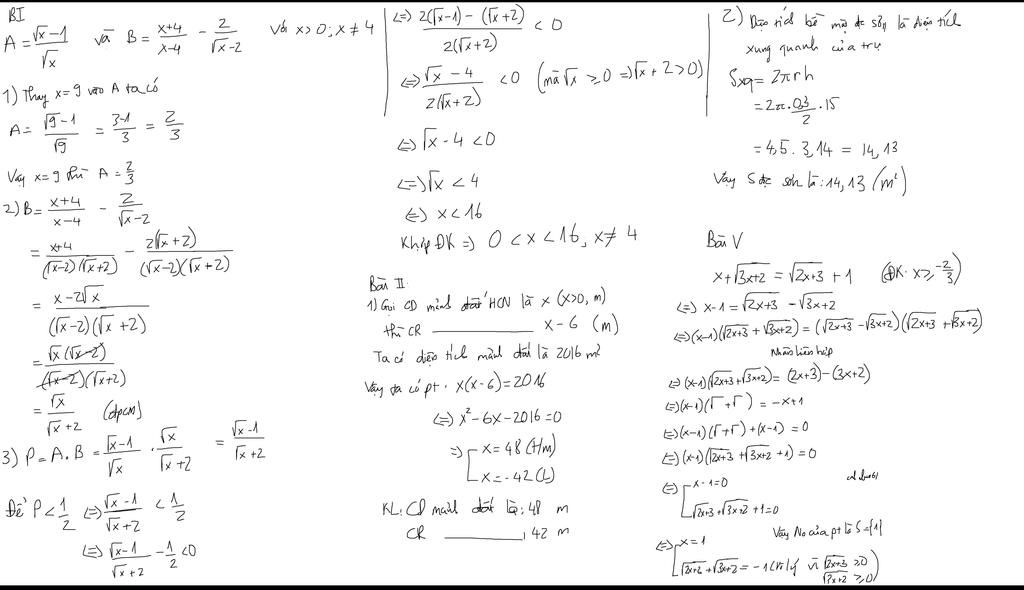 BI
A = (√x−1)/√x và B = (x+4)/(x−4) − 2/(√x−2) Với x>0; x≠4
1) Thay x=9 vào A ta có
A = (√9−1)/√9 = (3−1)/3 = 2/3
Vậy x=9 thì A = 2/3
2) B = (x+4)/(x−4) − 2/(√x−2)
= (x+4)/((√x−2)(√x+2)) − 2(√x+2)/((√x−2)(√x+2))
= (x−2√x)/((√x−2)(√x+2))
= √x(√x−2)/((√x−2)(√x+2))
= √x/(√x+2) (đpcm)
3) P = A.B = (√x−1)/√x · √x/(√x+2) = (√x−1)/(√x+2)
Để P < 1/2 ⇔ (√x−1)/(√x+2) < 1/2
⇔ (√x−1)/(√x+2) − 1/2 < 0
⇔ (2(√x−1) − (√x+2))/(2(√x+2)) < 0
⇔ (√x−4)/(2(√x+2)) < 0 (mà √x ≥0 ⇒ √x+2>0)
⇔ √x−4 <0
⇔ √x < 4
⇔ x < 16
Khợp ĐK ⇒ 0 < x < 16, x≠4
Bài II
1) Gọi CD mảnh đất HCN là x (x>0, m)
thì CR ———— x−6 (m)
Ta có diện tích mảnh đất là 2016 m²
Vậy ta có pt · x(x−6)=2016
⇔ x²−6x−2016=0
⇒ [ x=48 (t/m)
x=−42 (L)
KL: CD mảnh đất là: 48 m
CR ————: 42 m
2) Diện tích bề mặt đc sơn là diện tích
xung quanh của trụ
Sxq = 2πrh
= 2π·0,3/2·15
= 4,5.3,14 = 14,13
Vậy S đc sơn là: 14,13 (m²)
Bài V
x+√3x+2 = √2x+3 + 1 (ĐK: x ≥ −2/3)
⇔ x−1 = √2x+3 − √3x+2
⇔ (x−1)(√2x+3 + √3x+2) = (√2x+3 − √3x+2)(√2x+3 + √3x+2)
Nhân liên hợp
⇔ (x−1)(√2x+3+√3x+2) = (2x+3)−(3x+2)
⇔ (x−1)(√ +√ ) = −x+1
⇔ (x−1)(√ +√ )+(x−1) = 0
⇔ (x−1)(√2x+3 +√3x+2 +1) = 0
⇔ [ x−1=0
√2x+3+√3x+2+1=0
Vậy No của pt là S={1}
⇔ [ x=1
√2x+3+√3x+2 = −1 (Vô lý vì √2x+3 ≥0
√3x+2 ≥0)